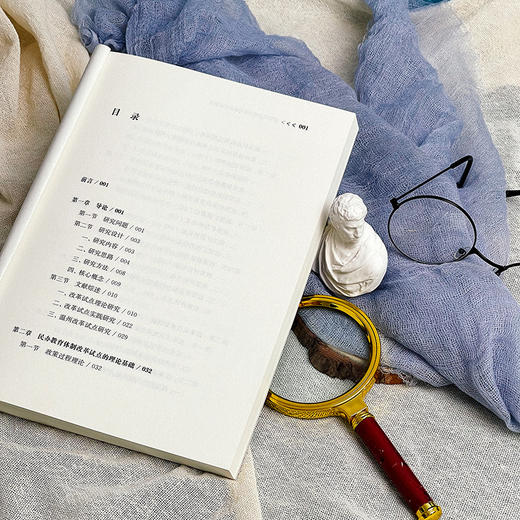 <<< 001
目 录
前言 / 001
第一章 导论 / 001
第一节 研究问题 / 001
第二节 研究设计 / 003
一、研究内容 / 003
二、研究思路 / 004
三、研究方法 / 008
四、核心概念 / 009
第三节 文献综述 / 010
一、改革试点理论研究 / 010
二、改革试点实践研究 / 022
三、温州改革试点研究 / 029
第二章 民办教育体制改革试点的理论基础 / 032
第一节 政策过程理论 / 032